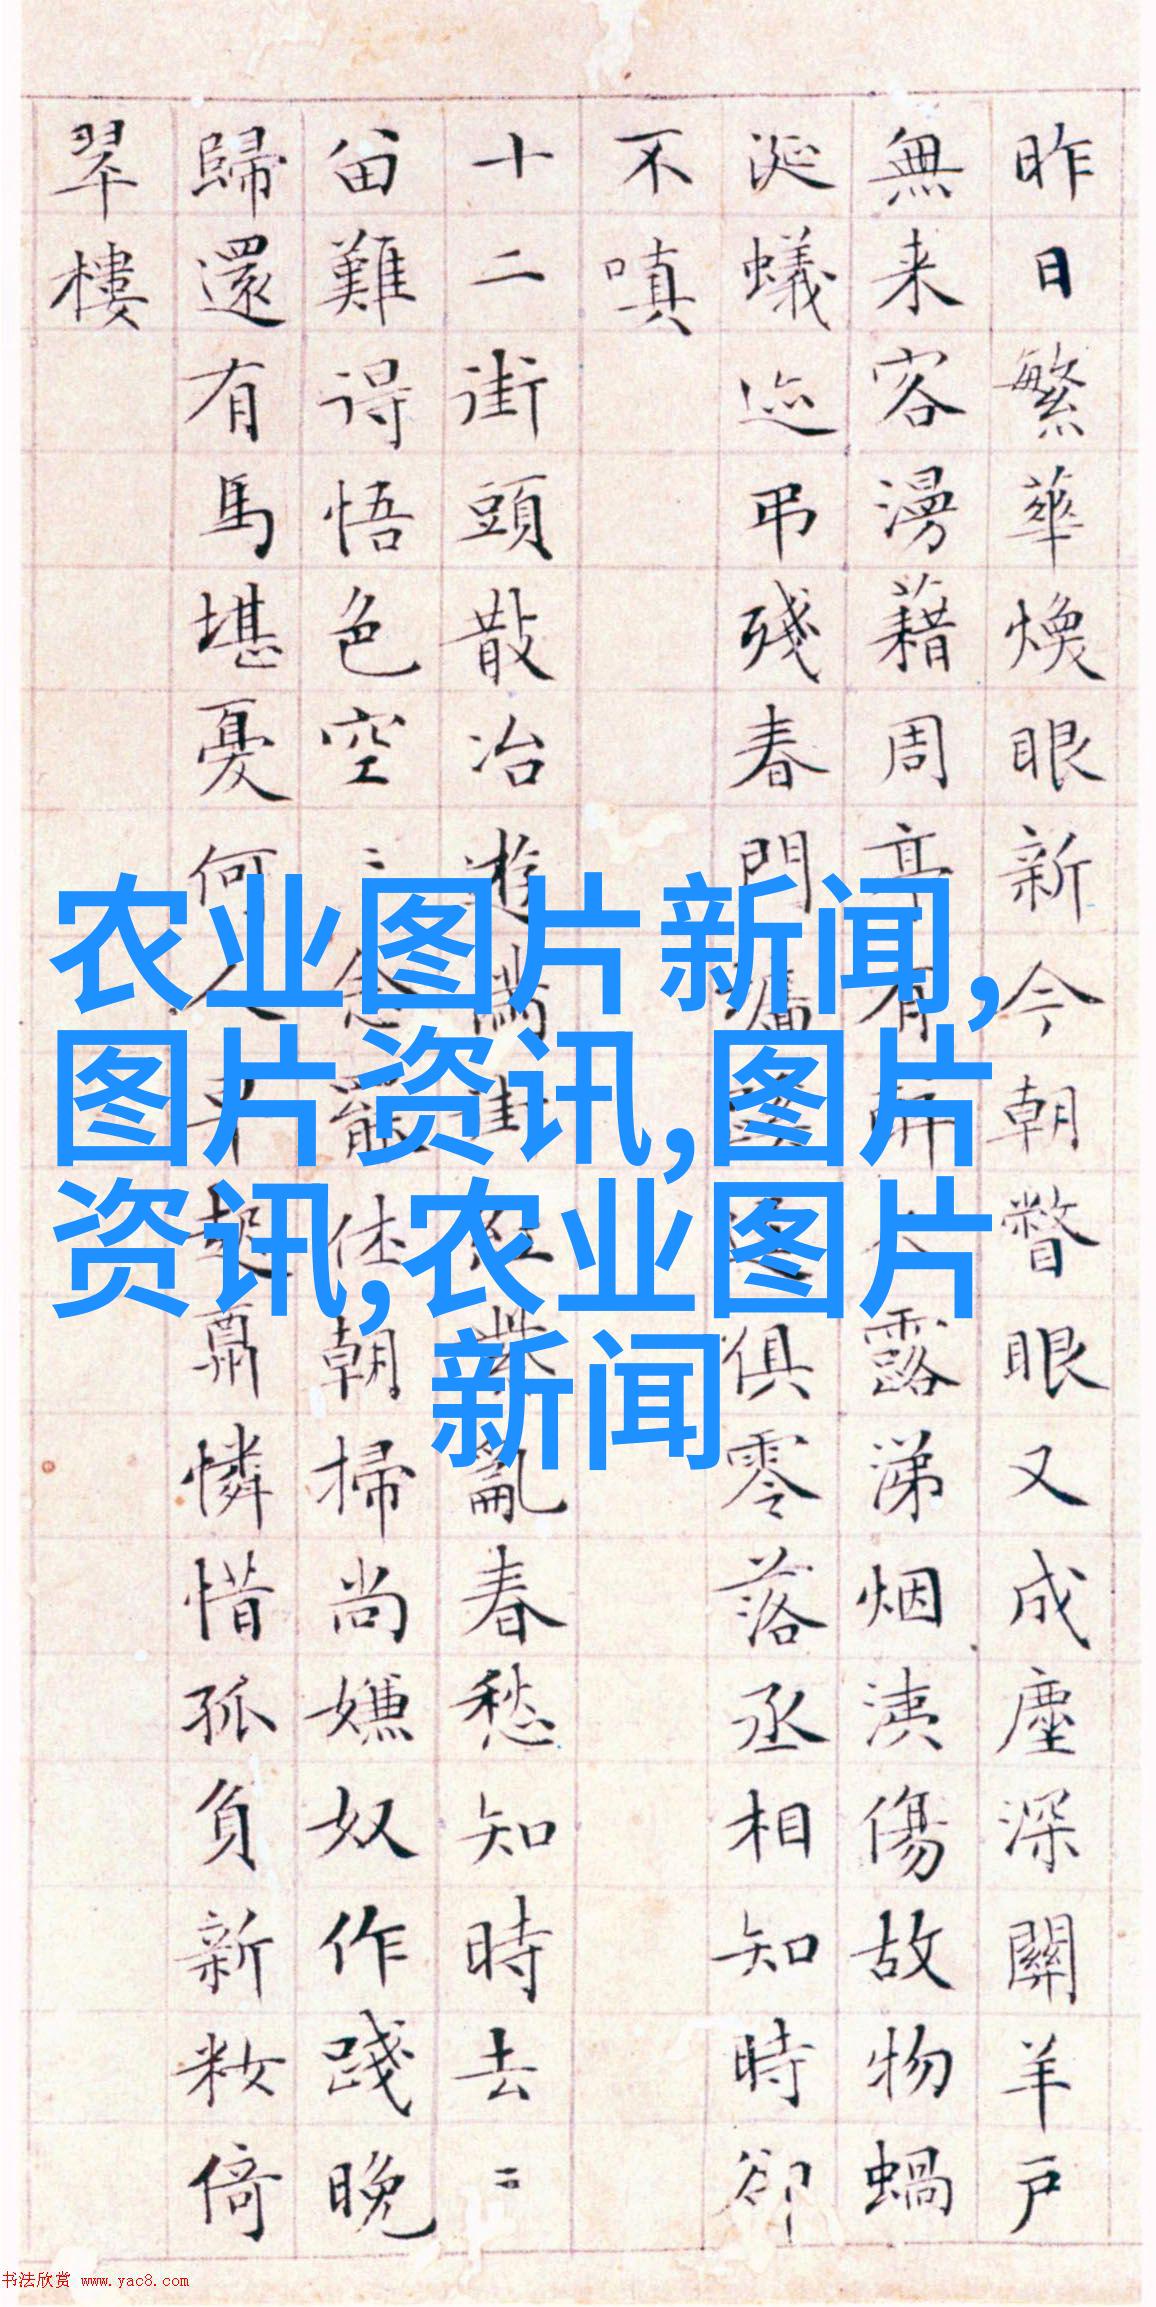 昨日繁華煥眼新今朝瞥眼又成塵深關羊戶
無来客漫藉周亭有露涕烟洟傷故物蝸
涎蟻迹弔殘春門俱零落丞相知時卻
不嗔
十二街頭散冶遊滿街紅紫亂春愁知時去〻
畱難得悟色空〻念罷休朝掃尚嫌奴作踐晚
歸還有馬堪憂何人早起憐惜孤負新粧倚
翠樓
农业图片新闻,
图片资讯,图片
资讯,农业图片
新闻
书法欣赏 www.yac8.com